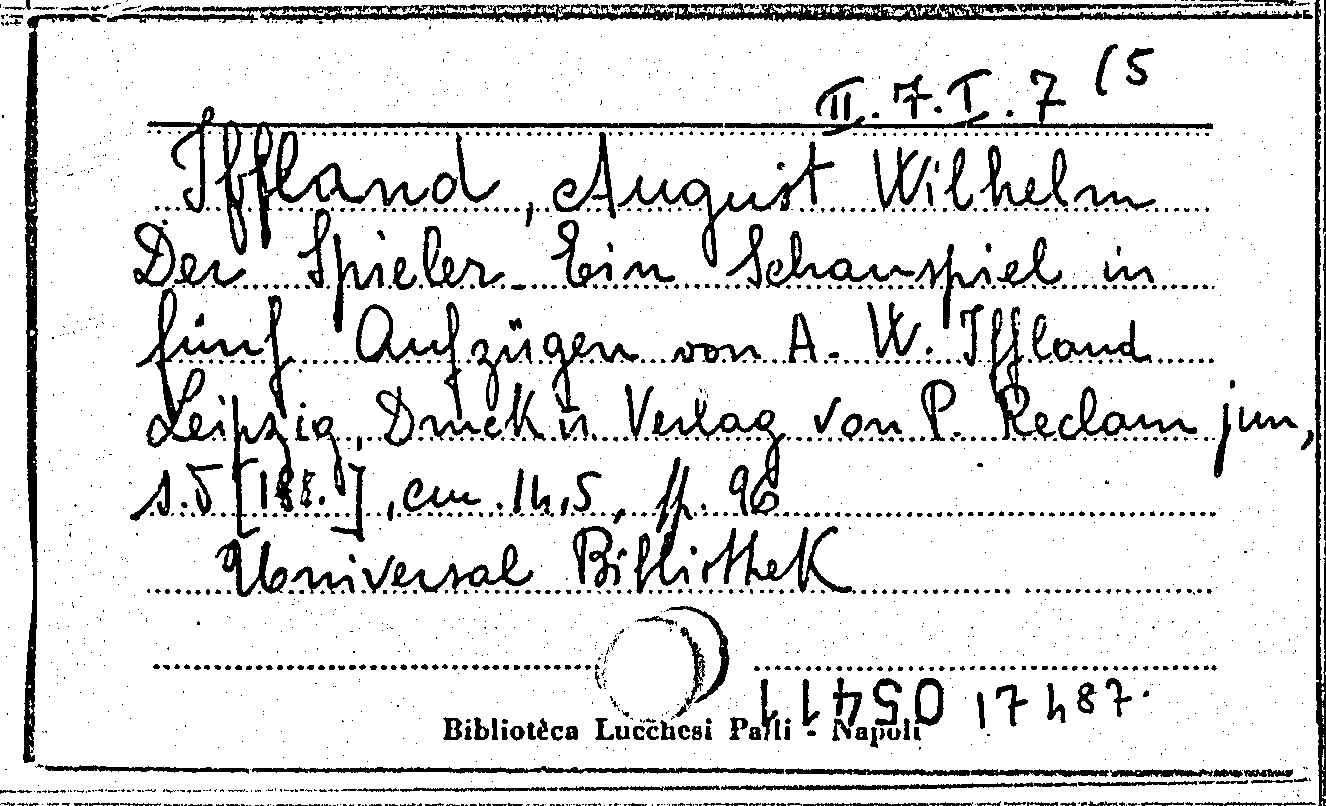 II. 7. I. 7 (5
Iffland, August Wilhelm
Der Spieler. Ein Schauspiel in
fünf Aufzügen von A. W. Iffland
Leipzig, Druck u. Verlag von P. Reclam jun,
s.d [188.], cm. 14,5, pp. 96
Universal Bibliothek
05411 17487.
Bibliotèca Lucchesi Palli - Napoli